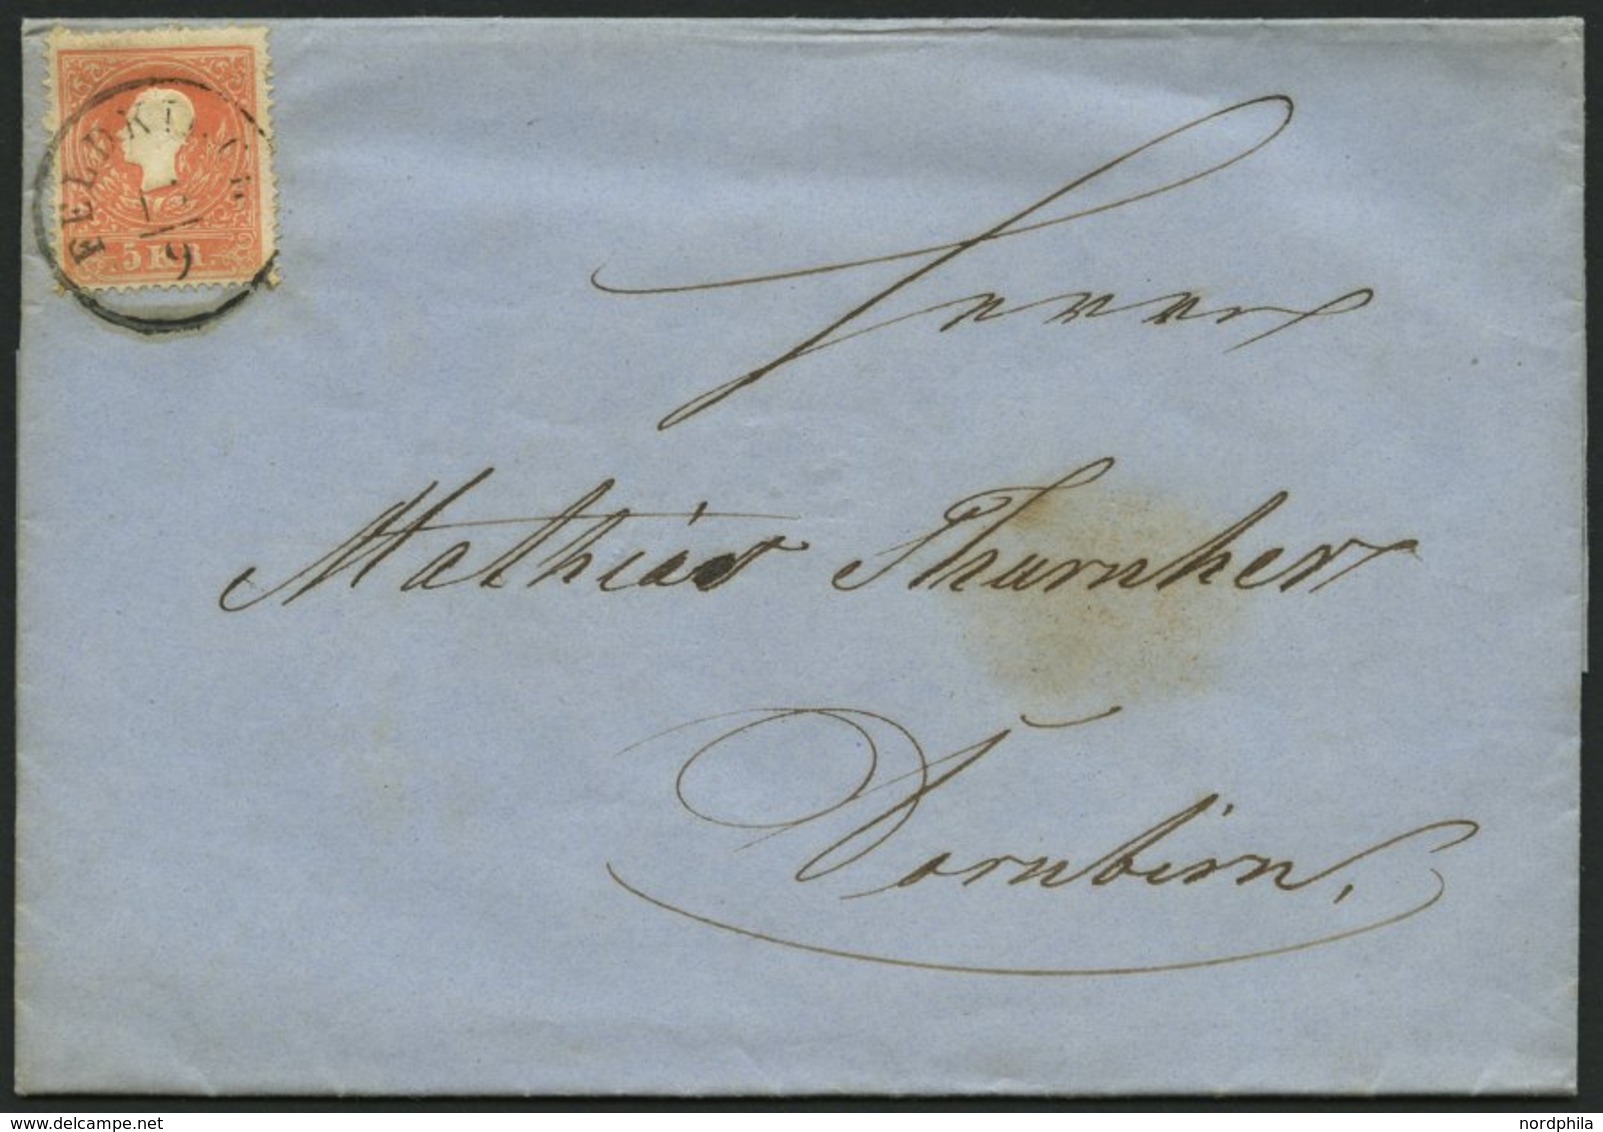 FELDKIRCH
9
5 KR.
Herrn
Mathias Thurnher
Dornbirn.
www.delcampe.net
nordphila